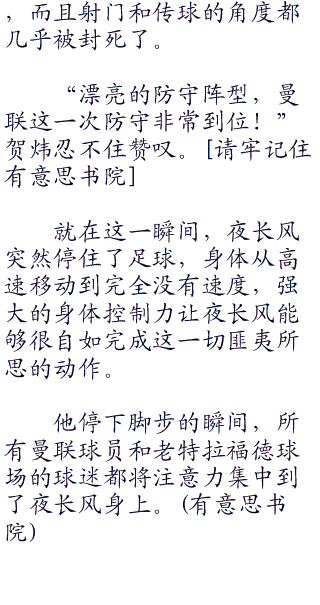 ，而且射门和传球的角度都
几乎被封死了。
“漂亮的防守阵型，曼
联这一次防守非常到位！”
贺炜忍不住赞叹。[请牢记住
有意思书院]
就在这一瞬间，夜长风
突然停住了足球，身体从高
速移动到完全没有速度，强
大的身体控制力让夜长风能
够很自如完成这一切匪夷所
思的动作。
他停下脚步的瞬间，所
有曼联球员和老特拉福德球
场的球迷都将注意力集中到
了夜长风身上。(有意思书
院)